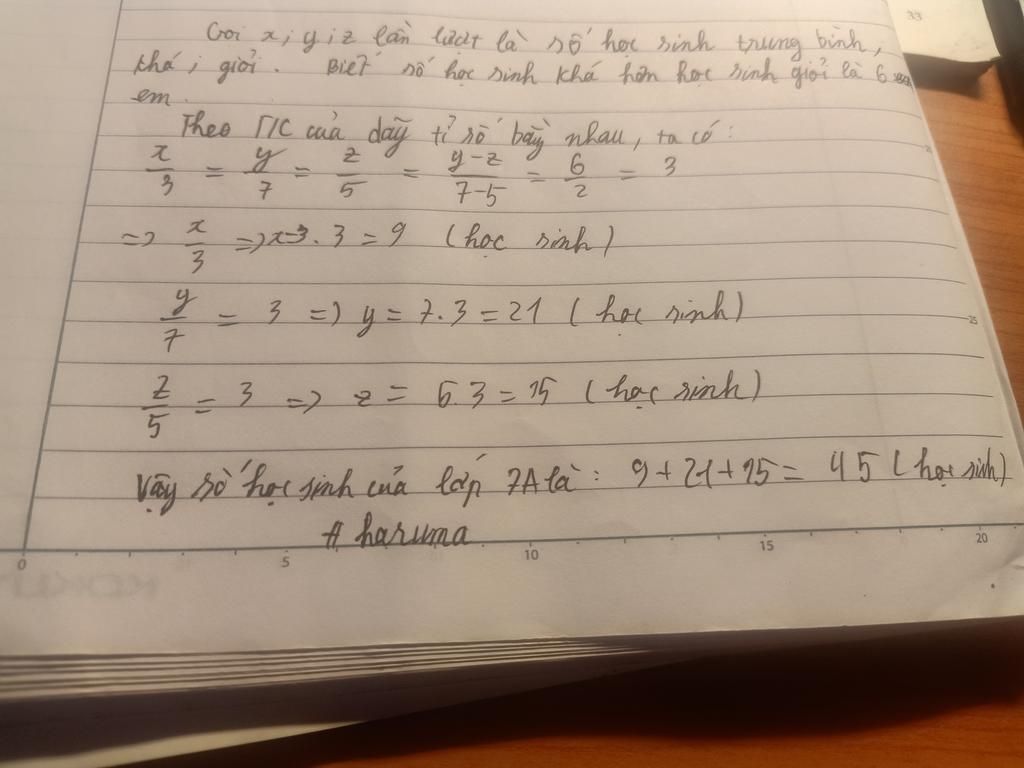 33
Gọi x; y; z lần lượt là số học sinh trung bình,
khá; giỏi. Biết số học sinh khá hơn học sinh giỏi là 6
em.
Theo T/C của dãy tỉ số bằng nhau, ta có:
x/3 = y/7 = z/5 = y-z/7-5 = 6/2 = 3
=> x/3 => x=3.3 = 9 (học sinh)
y/7 = 3 => y = 7.3 = 21 (học sinh)
25
z/5 = 3 => z = 5.3 = 15 (học sinh)
Vậy số học sinh của lớp 7A là: 9+21+15= 45 (học sinh)
# haruma
0 5 10 15 20